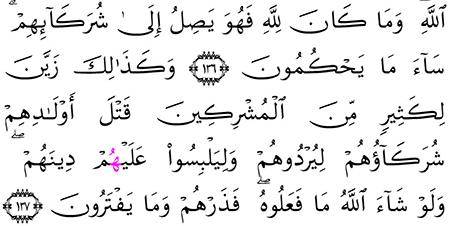 ٱللَّهِ ۖ وَمَا كَانَ لِلَّهِ فَهُوَ يَصِلُ إِلَىٰ شُرَكَآئِهِمْ ۗ
سَآءَ مَا يَحْكُمُونَ ١٣٦ وَكَذَٰلِكَ زَيَّنَ
لِكَثِيرٍ مِّنَ ٱلْمُشْرِكِينَ قَتْلَ أَوْلَـٰدِهِمْ
شُرَكَآؤُهُمْ لِيُرْدُوهُمْ وَلِيَلْبِسُوا۟ عَلَيْهُمْ دِينَهُمْ ۖ
وَلَوْ شَآءَ ٱللَّهُ مَا فَعَلُوهُ ۖ فَذَرْهُمْ وَمَا يَفْتَرُونَ ١٣٧